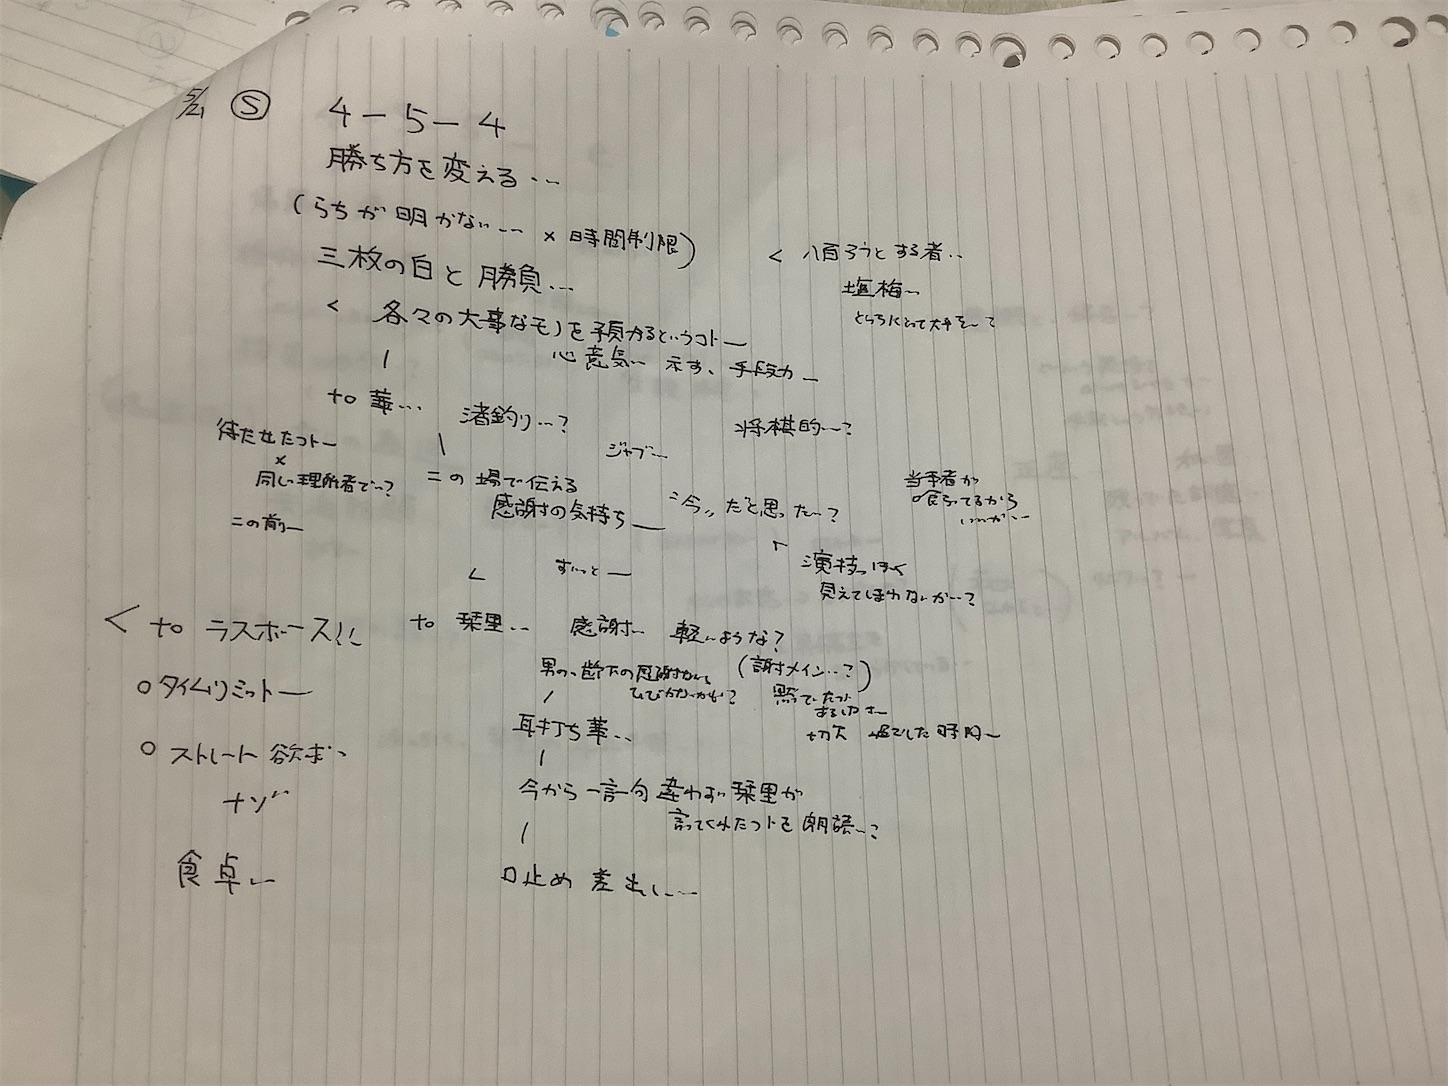 5/21 Ⓢ 4-5-4
勝ち方を変える…
(らちが明かない… × 時間制限)
三枚の白と勝負…
< 八百ろうとする者..
塩梅…
< 各々の大事なモノを預かるというコト―
心意気… 示す、手段力―
to 華…
渚釣り…?
将棋的…?
ジャブ…
待たせたコト―
×
同じ理解者で…?
この前―
この場で伝える
感謝の気持ち―
"今"だと思った…?
当事者が
眠ってるから
いいが…
演技っぽく
見えてしまわないか…?
ずっと―
< to ラスボース!!
to 栞里…
感謝… 軽いような?
男の、歯下の感謝が
(謝メイン…?)
黙ってたコト
○タイムリミット―
耳打ち華…
○ストレート欲求…
ナゾ
今から一言一句違わず栞里が
言ってくれたコトを朗読…?
食卓…
口止め差出し…